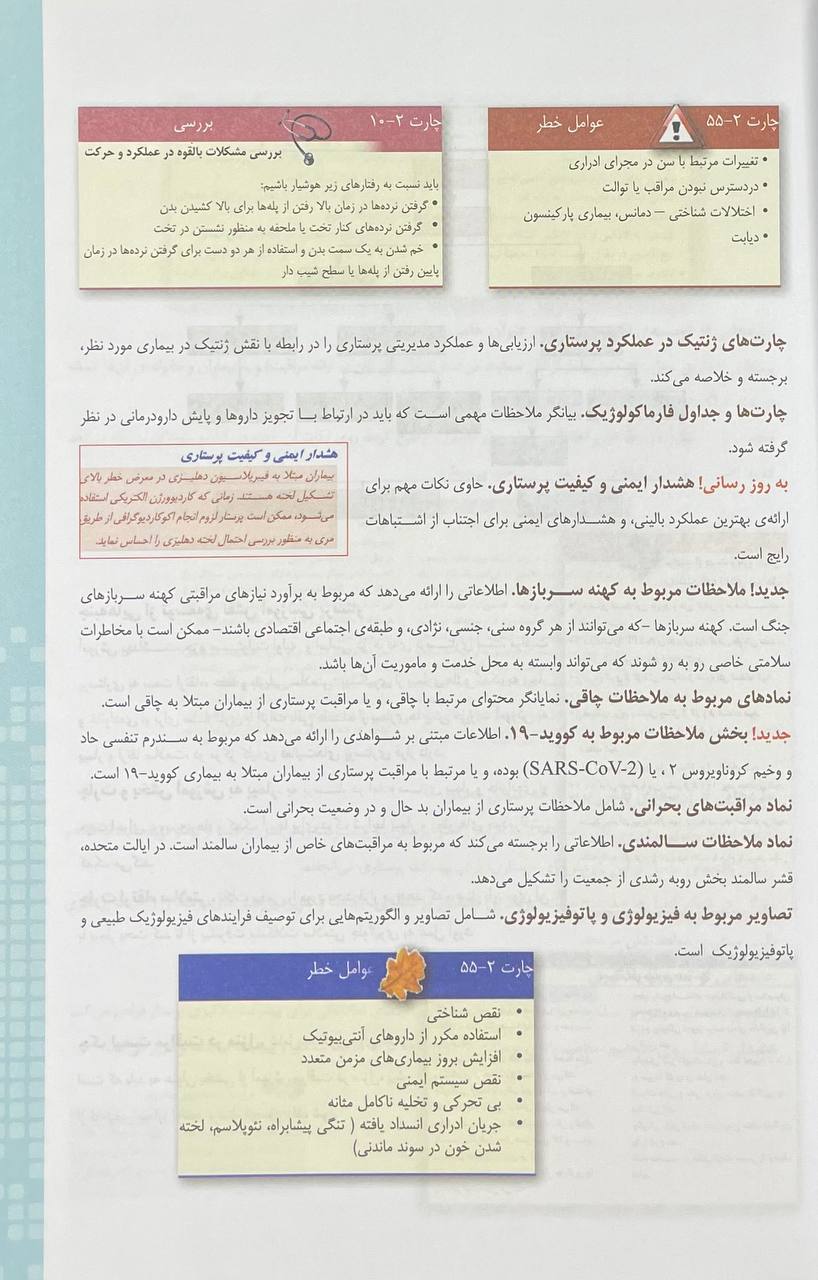 چارت ۲-۵۵ عوامل خطر
• تغییرات مرتبط با سن در مجرای ادراری
• دردسترس نبودن مراقب یا توالت
• اختلالات شناختی – دمانس، بیماری پارکینسون
• دیابت
چارت ۲-۱۰ بررسی
بررسی مشکلات بالقوه در عملکرد و حرکت
باید نسبت به رفتارهای زیر هوشیار باشیم:
• گرفتن نرده‌ها در زمان بالا رفتن از پله‌ها برای بالا کشیدن بدن
• گرفتن نرده‌های کنار تخت یا ملحفه به منظور نشستن در تخت
• خم شدن به یک سمت بدن و استفاده از هر دو دست برای گرفتن نرده‌ها در زمان
پایین رفتن از پله‌ها یا سطح شیب دار
چارت‌های ژنتیک در عملکرد پرستاری. ارزیابی‌ها و عملکرد مدیریتی پرستاری را در رابطه با نقش ژنتیک در بیماری مورد نظر،
برجسته و خلاصه می‌کند.
چارت‌ها و جداول فارماکولوژیک. بیانگر ملاحظات مهمی است که باید در ارتباط با تجویز داروها و پایش دارودرمانی در نظر
گرفته شود.
به روز رسانی! هشدار ایمنی و کیفیت پرستاری. حاوی نکات مهم برای
ارائه‌ی بهترین عملکرد بالینی، و هشدارهای ایمنی برای اجتناب از اشتباهات
رایج است.
هشدار ایمنی و کیفیت پرستاری
بیماران مبتلا به فیبریلاسیون دهلیزی در معرض خطر بالای
تشکیل لخته هستند. زمانی که کاردیوورژن الکتریکی استفاده
می‌شود، ممکن است پرستار لزوم انجام اکوکاردیوگرافی از طریق
مری به منظور بررسی احتمال لخته دهلیزی را احساس نماید.
جدید! ملاحظات مربوط به کهنه سربازها. اطلاعاتی را ارائه می‌دهد که مربوط به برآورد نیازهای مراقبتی کهنه سربازهای
جنگ است. کهنه سربازها -که می‌توانند از هر گروه سنی، جنسی، نژادی، و طبقه‌ی اجتماعی اقتصادی باشند- ممکن است با مخاطرات
سلامتی خاصی رو به رو شوند که می‌تواند وابسته به محل خدمت و ماموریت آن‌ها باشد.
نمادهای مربوط به ملاحظات چاقی. نمایانگر محتوای مرتبط با چاقی، و یا مراقبت پرستاری از بیماران مبتلا به چاقی است.
جدید! بخش ملاحظات مربوط به کووید-۱۹. اطلاعات مبتنی بر شواهدی را ارائه می‌دهد که مربوط به سندرم تنفسی حاد
و وخیم کروناویروس ۲ ، یا (SARS-CoV-2) بوده، و یا مرتبط با مراقبت پرستاری از بیماران مبتلا به بیماری کووید-۱۹ است.
نماد مراقبت‌های بحرانی. شامل ملاحظات پرستاری از بیماران بد حال و در وضعیت بحرانی است.
نماد ملاحظات سالمندی. اطلاعاتی را برجسته می‌کند که مربوط به مراقبت‌های خاص از بیماران سالمند است. در ایالت متحده،
قشر سالمند بخش روبه رشدی از جمعیت را تشکیل می‌دهد.
تصاویر مربوط به فیزیولوژی و پاتوفیزیولوژی. شامل تصاویر و الگوریتم‌هایی برای توصیف فرایندهای فیزیولوژیک طبیعی و
پاتوفیزیولوژیک است.
چارت ۲-۵۵ عوامل خطر
• نقص شناختی
• استفاده مکرر از داروهای آنتی‌بیوتیک
• افزایش بروز بیماری‌های مزمن متعدد
• نقص سیستم ایمنی
• بی تحرکی و تخلیه ناکامل مثانه
• جریان ادراری انسداد یافته ( تنگی پیشابراه، نئوپلاسم، لخته
شدن خون در سوند ماندنی)